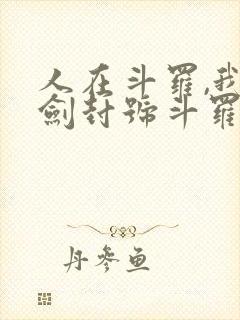 人在斗羅,我
劍封號斗羅
丹參魚